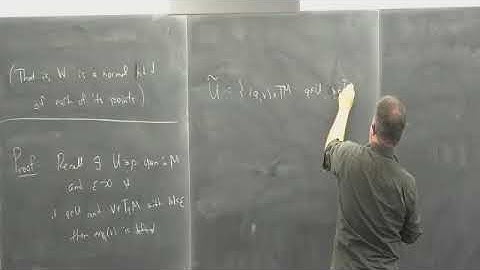 (That is, W is a normal nbhd
of each of its points)
Proof: Recall ∃ U∋p open in M
and ε>0 ∀
if q∈U and v∈TqM with |v|<ε
then expq(v) is defined
Ũ = { (q,v)∈TM q∈U